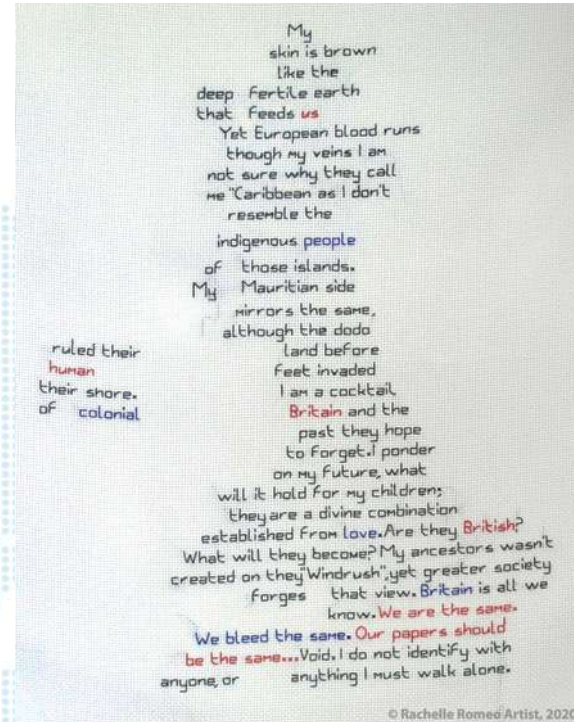 My
skin is brown
like the
deep fertile earth
that feeds us
Yet European blood runs
though my veins I am
not sure why they call
me "Caribbean as I don't
resemble the
indigenous people
of those islands.
My Mauritian side
mirrors the same,
although the dodo
ruled their land before
human feet invaded
their shore. I am a cocktail
of colonial Britain and the
past they hope
to forget.I ponder
on my future, what
will it hold for my children;
they are a divine combination
established from love.Are they British?
What will they become? My ancestors wasn't
created on they"Windrush",yet greater society
forges that view. Britain is all we
know. We are the same.
We bleed the same. Our papers should
be the same...Void. I do not identify with
anyone, or anything I must walk alone.
© Rachelle Romeo Artist, 2020